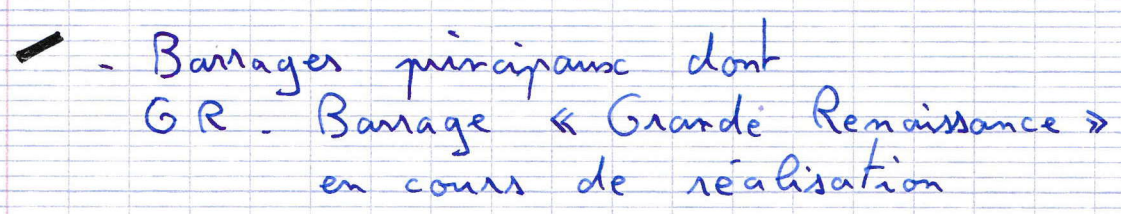 - Barrages principaux dont
GR - Barrage « Grande Renaissance »
en cours de réalisation